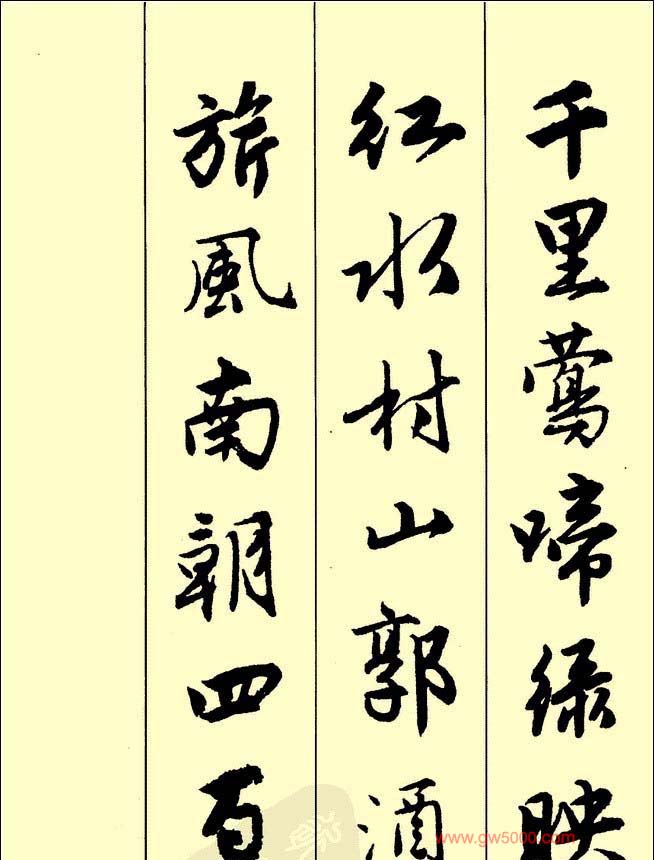 千里莺啼绿映
红水村山郭酒
旂風南朝四百
www.gw5000.com